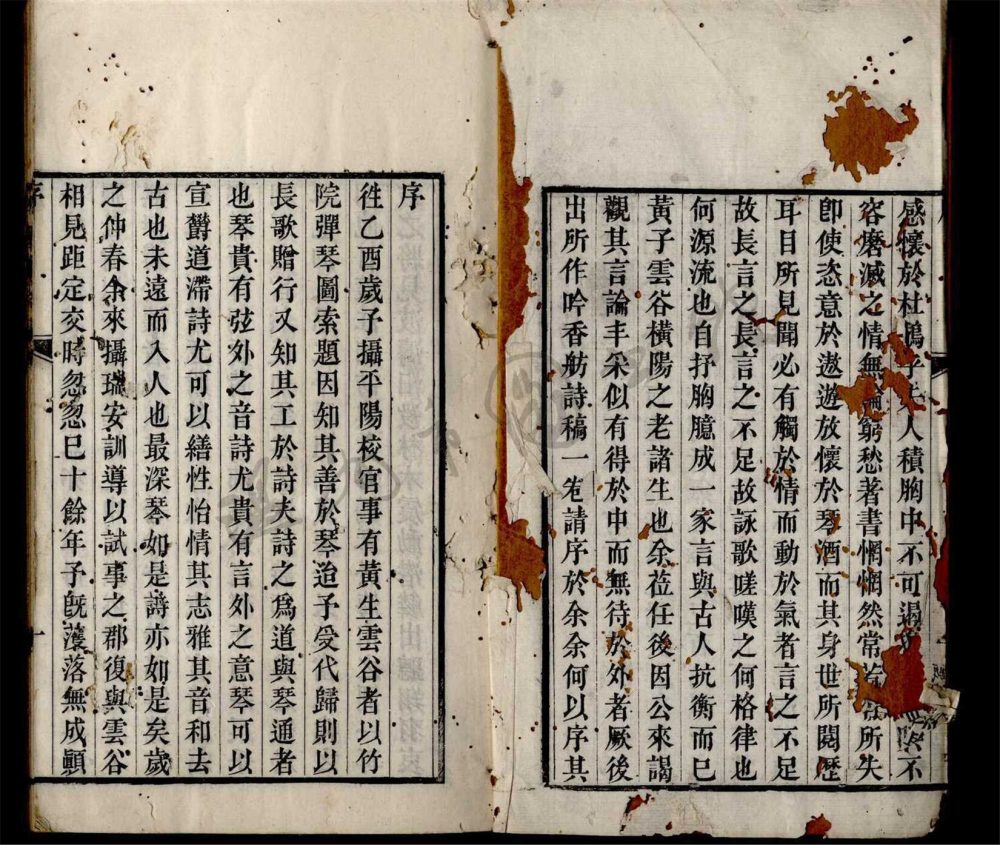 感懷於杜鵑乎夫人積胸中不可遏不
容磨滅之情無論窮愁著書惘惘然常若有所失
卽使恣意於遨遊放懷於琴酒而其身世所閱歷
耳目所見聞必有觸於情而動於氣者言之不足
故長言之長言之不足故詠歌嗟嘆之何格律也
何源流也自抒胸臆成一家言與古人抗衡而已
黃子雲谷橫陽之老諸生也余莅任後因公來謁
觀其言論丰采似有得於中而無待於外者厥後
出所作吟香舫詩稿一卷請序於余余何以序其
序
徃乙酉歲予攝平陽校官事有黃生雲谷者以竹
院彈琴圖索題因知其善於琴迨予受代歸則以
長歌贈行又知其工於詩夫詩之爲道與琴通者
也琴貴有弦外之音詩尤貴有言外之意琴可以
宣欝道滯詩尤可以繕性怡情其志雅其音和去
古也未遠而入人也最深琴如是詩亦如是矣歲
之仲春余來攝瑞安訓導以試事之郡復與雲谷
相見距定交時忽忽已十餘年予旣濩落無成顧
序
一